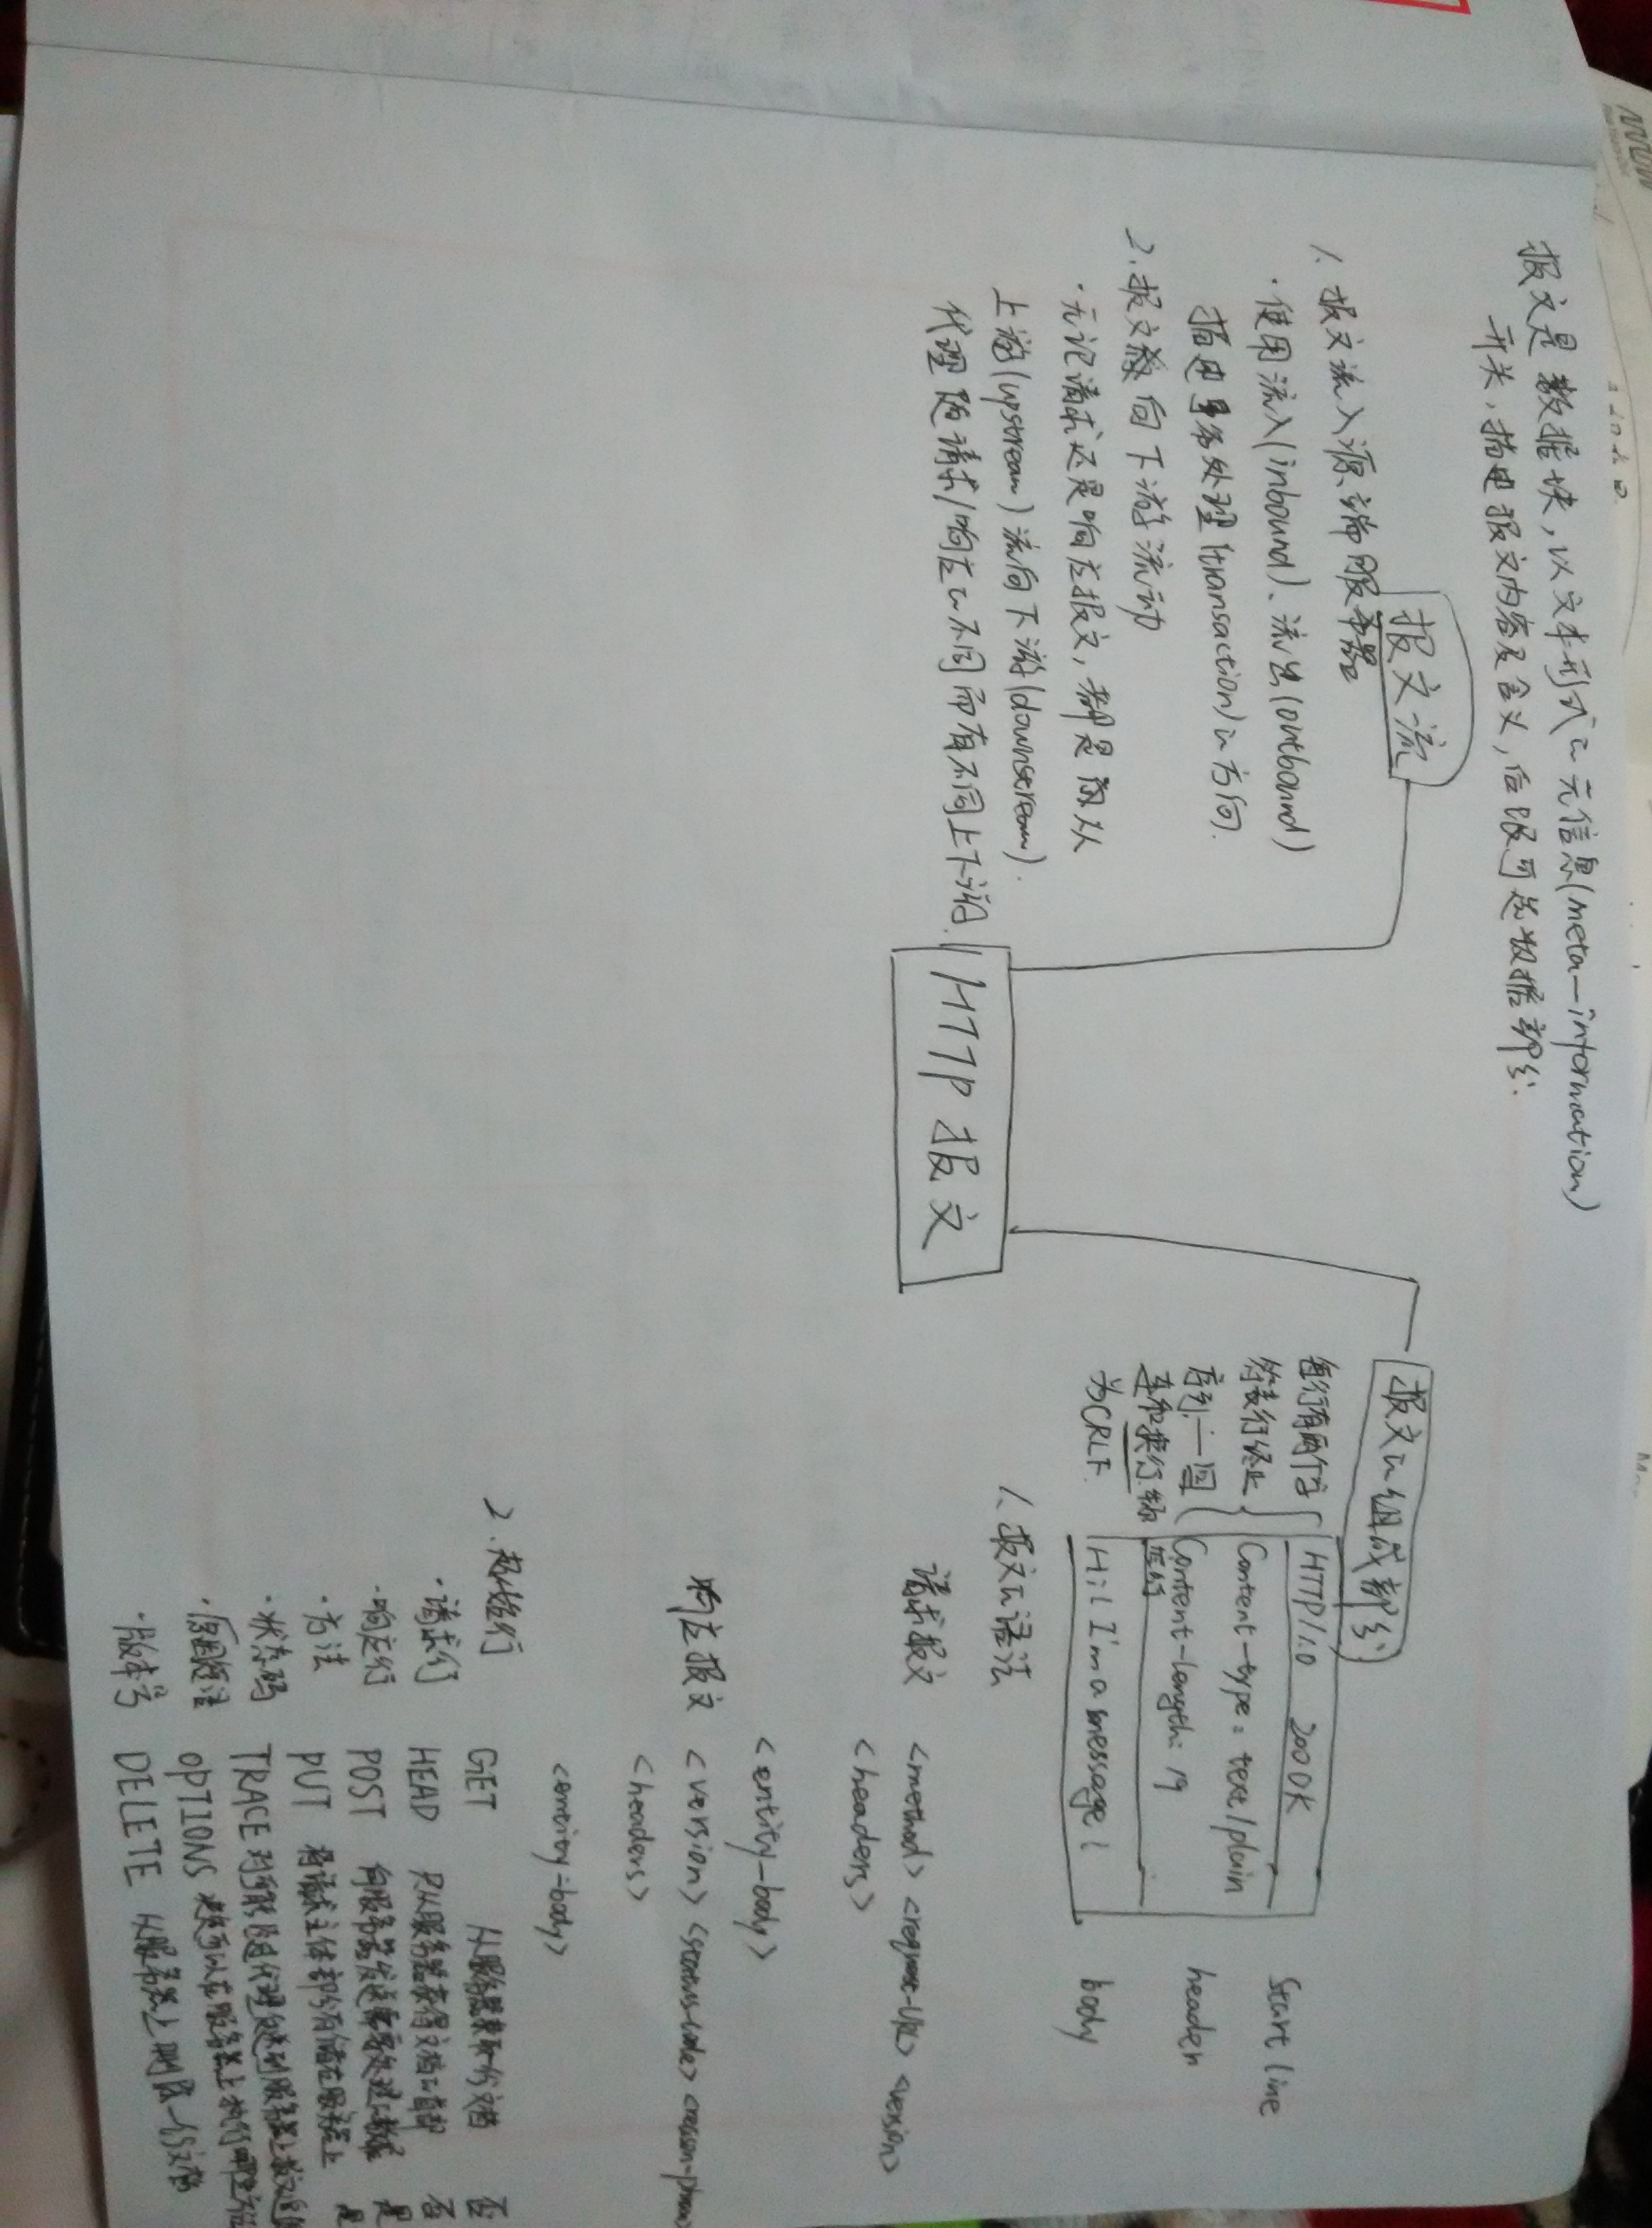 报文是数据块，以文本形式的元信息(meta-information)
开关，描述报文内容及含义，后跟可选数据部分.
报文流
1. 报文流入源端服务器
·使用流入(inbound)、流出(outbound)
描述事务处理(transaction)的方向.
2. 报文向下游流动
·无论请求还是响应报文，都是从
上游(upstream)流向下游(downstream).
代理随请求/响应的不同而有不同上下游.
HTTP 报文
报文的组成部分
每行有两个字
符表行终止
序列:一回
车和换行
为CRLF.
HTTP/1.0 200OK
Content-type: text/plain
Content-length: 19
空行
Hi! I'm a message!
Start line
header
body
1. 报文的语法
请求报文 <method> <request-URL> <version>
<headers>
<entity-body>
响应报文 <version> <status-code> <reason-phrase>
<headers>
<entity-body>
2. 起始行
·请求行
·响应行
·方法
·状态码
·原因短语
·版本号
GET 从服务器获取一份文档 否
HEAD 只从服务器获得文档的首部 否
POST 向服务器发送需要处理的数据 是
PUT 将请求主体部分存储在服务器上 是
TRACE 对可能经过代理达到服务器上报文追踪
OPTIONS 决定可以在服务器上执行哪些方法
DELETE 从服务器上删除一份文档